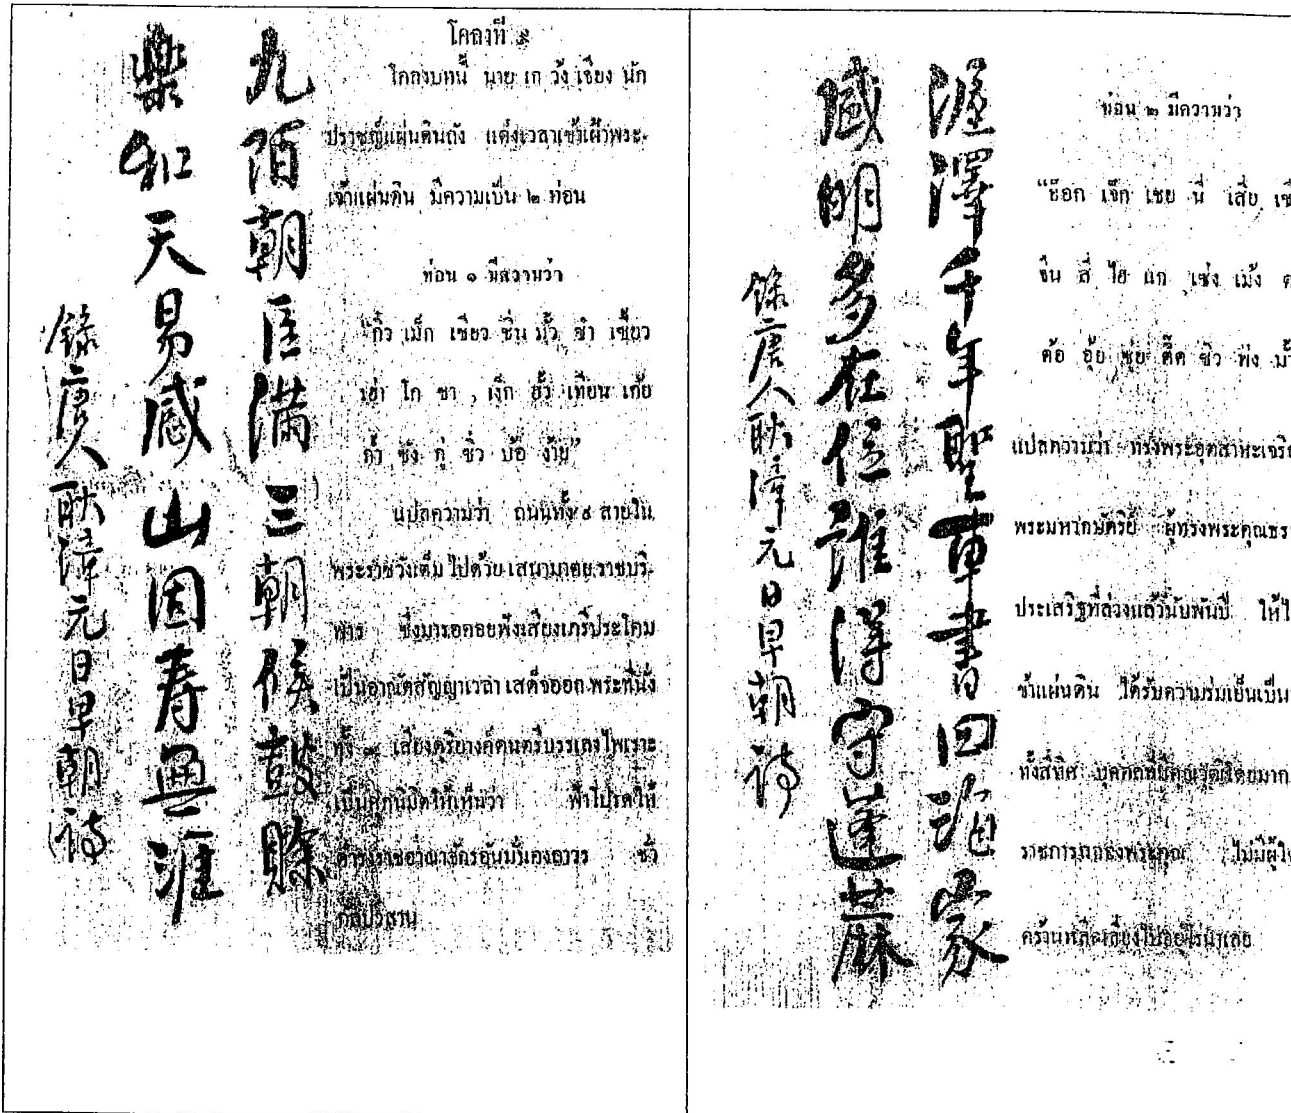 โคลงที่ ๙
โคลงบทนี้ นาย เก วัง เซียง นัก
ปราชญ์แผ่นดินถัง แต่งเวลาเช้าเฝ้าพระ-
เจ้าแผ่นดิน มีความเป็น ๒ ท่อน
ท่อน ๑ มีความว่า
"กิ๋ว เม็ก เชียว ซิ่น มั้ว ซำ เชี้ยว
เฮ่า โก ซา , เง็ก ฮั้ว เทียน เก้ย
ก้ำ ซัง กู่ ซิ่ว บ้อ ง้าย"
แปลความว่า ถนนทั้ง ๙ สายใน
พระราชวังเต็มไปด้วยเสนามาตยราชบริ-
พาร ซึ่งมารอคอยฟังเสียงเภรีประโคม
เป็นอาณัตสัญญาเวลาเสด็จออกพระที่นั่ง
ทั้ง ๓ เสียงดุริยางค์ดนตรีบรรเลงไพเราะ
เป็นศุภนิมิตให้เห็นว่า ฟ้าโปรดให้
ดำรงราชอาณาจักรอันมั่นคงถาวร ชั่ว
กัลปาวสาน
九陌朝臣滿三朝候鼓賒
樂和天易感山固壽無涯
錄唐人耿湋元日早朝詩
ท่อน ๒ มีความว่า
"อ๊อก เจ็ก เชย นี่ เสี่ย เชี
จืน สี่ ไฮ แก เซ่ง เม้ง ต
ต้อ อุ้ย ซุย ติ๊ด ซิว พ่ง ม้
แปลความว่า ทรงพระอุตสาหะเจริญ
พระมหากษัตริย์ ผู้ทรงพระคุณธร
ประเสริฐที่ล่วงแล้วนับพันปี ให้ไ
ข้าแผ่นดิน ได้รับความร่มเย็นเป็น
ทั้งสี่ทิศ บุคคลที่มีคุณวุฒิโดยมาก
ราชการฉลองพระคุณ ไม่มีผู้ใด
คร้านหลีกเลี่ยงไปอยู่ไร่นาเลย
渥澤千年聖車書四海家
盛明多在位誰得守蓬麻
錄唐人耿湋元日早朝詩